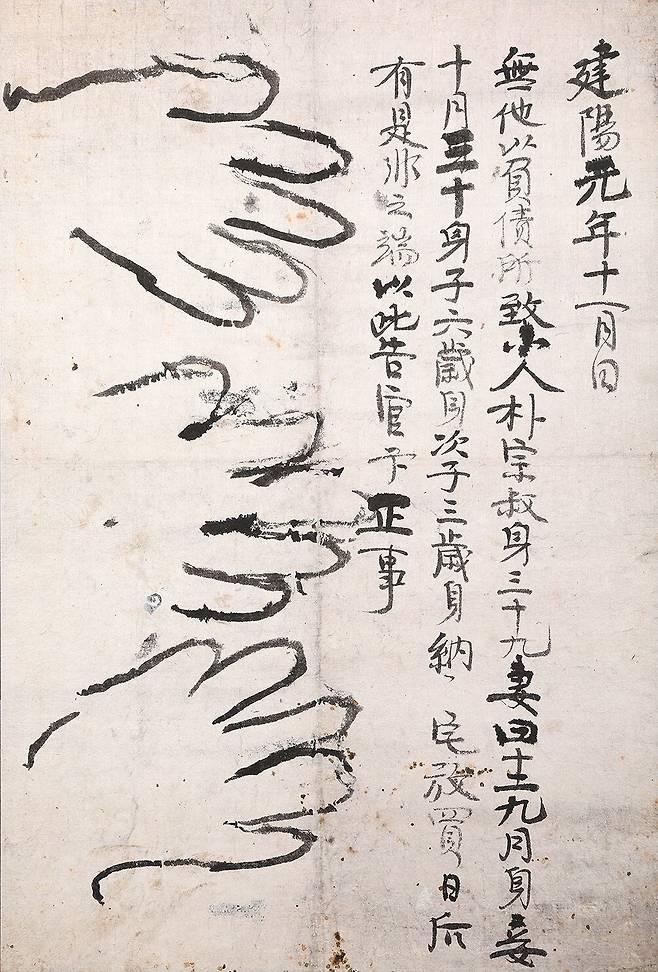 建陽元年十一月日
無他以負債所致小人朴宗叔身三十九妻四十三九月身妾
十月三十身子六歲身次子三歲身納宅放買日后
有是非之端以此告官卞正事